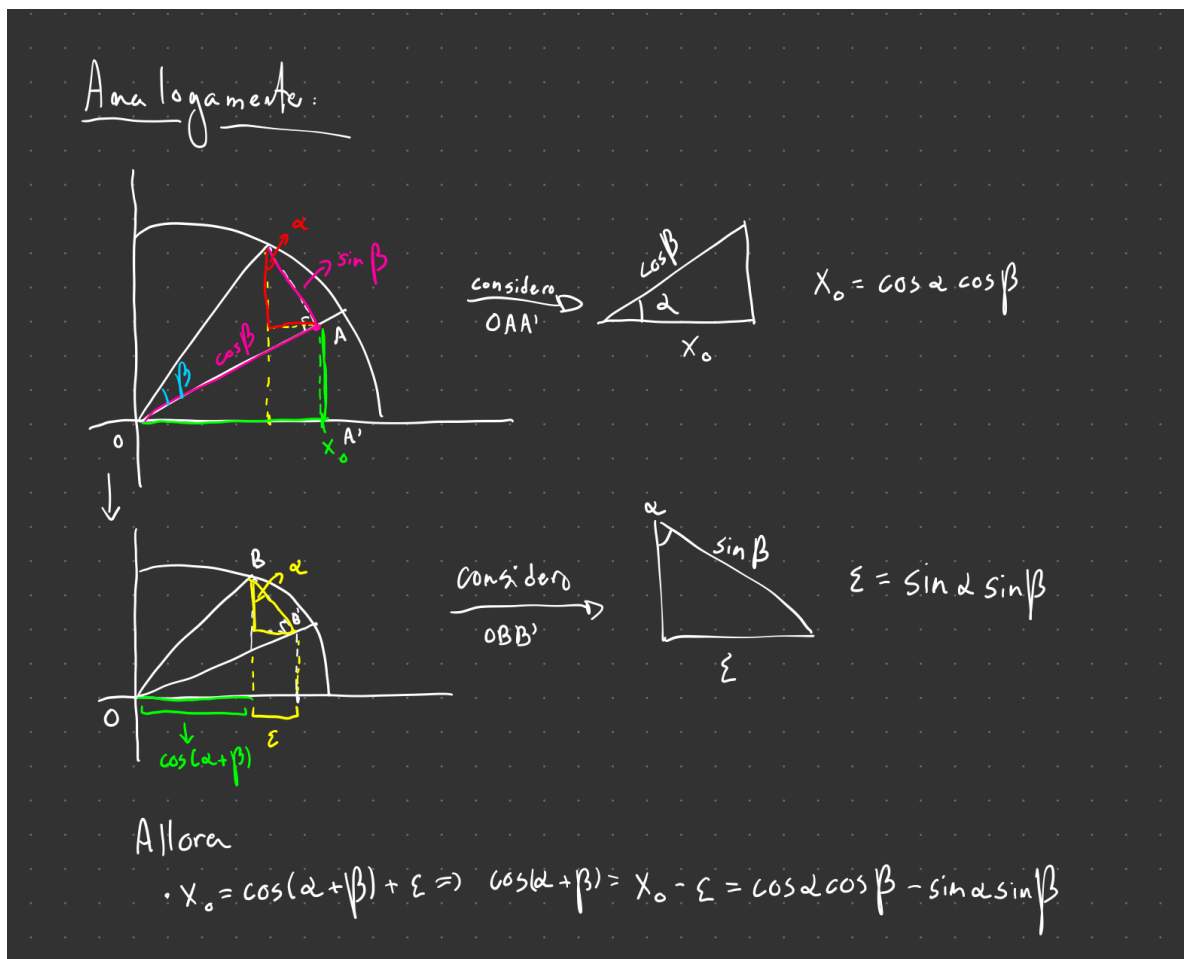 Analogamente:
α
sin β
cosβ
β
A
O
A'
X₀
considero
OAA'
cosβ
α
X₀
X₀ = cos α cos β
B
α
B'
O
ε
cos(α+β)
considero
OBB'
α
sin β
ε
ε = sin α sin β
Allora
· X₀ = cos(α+β) + ε => cos(α+β) = X₀ - ε = cosαcosβ - sinαsinβ